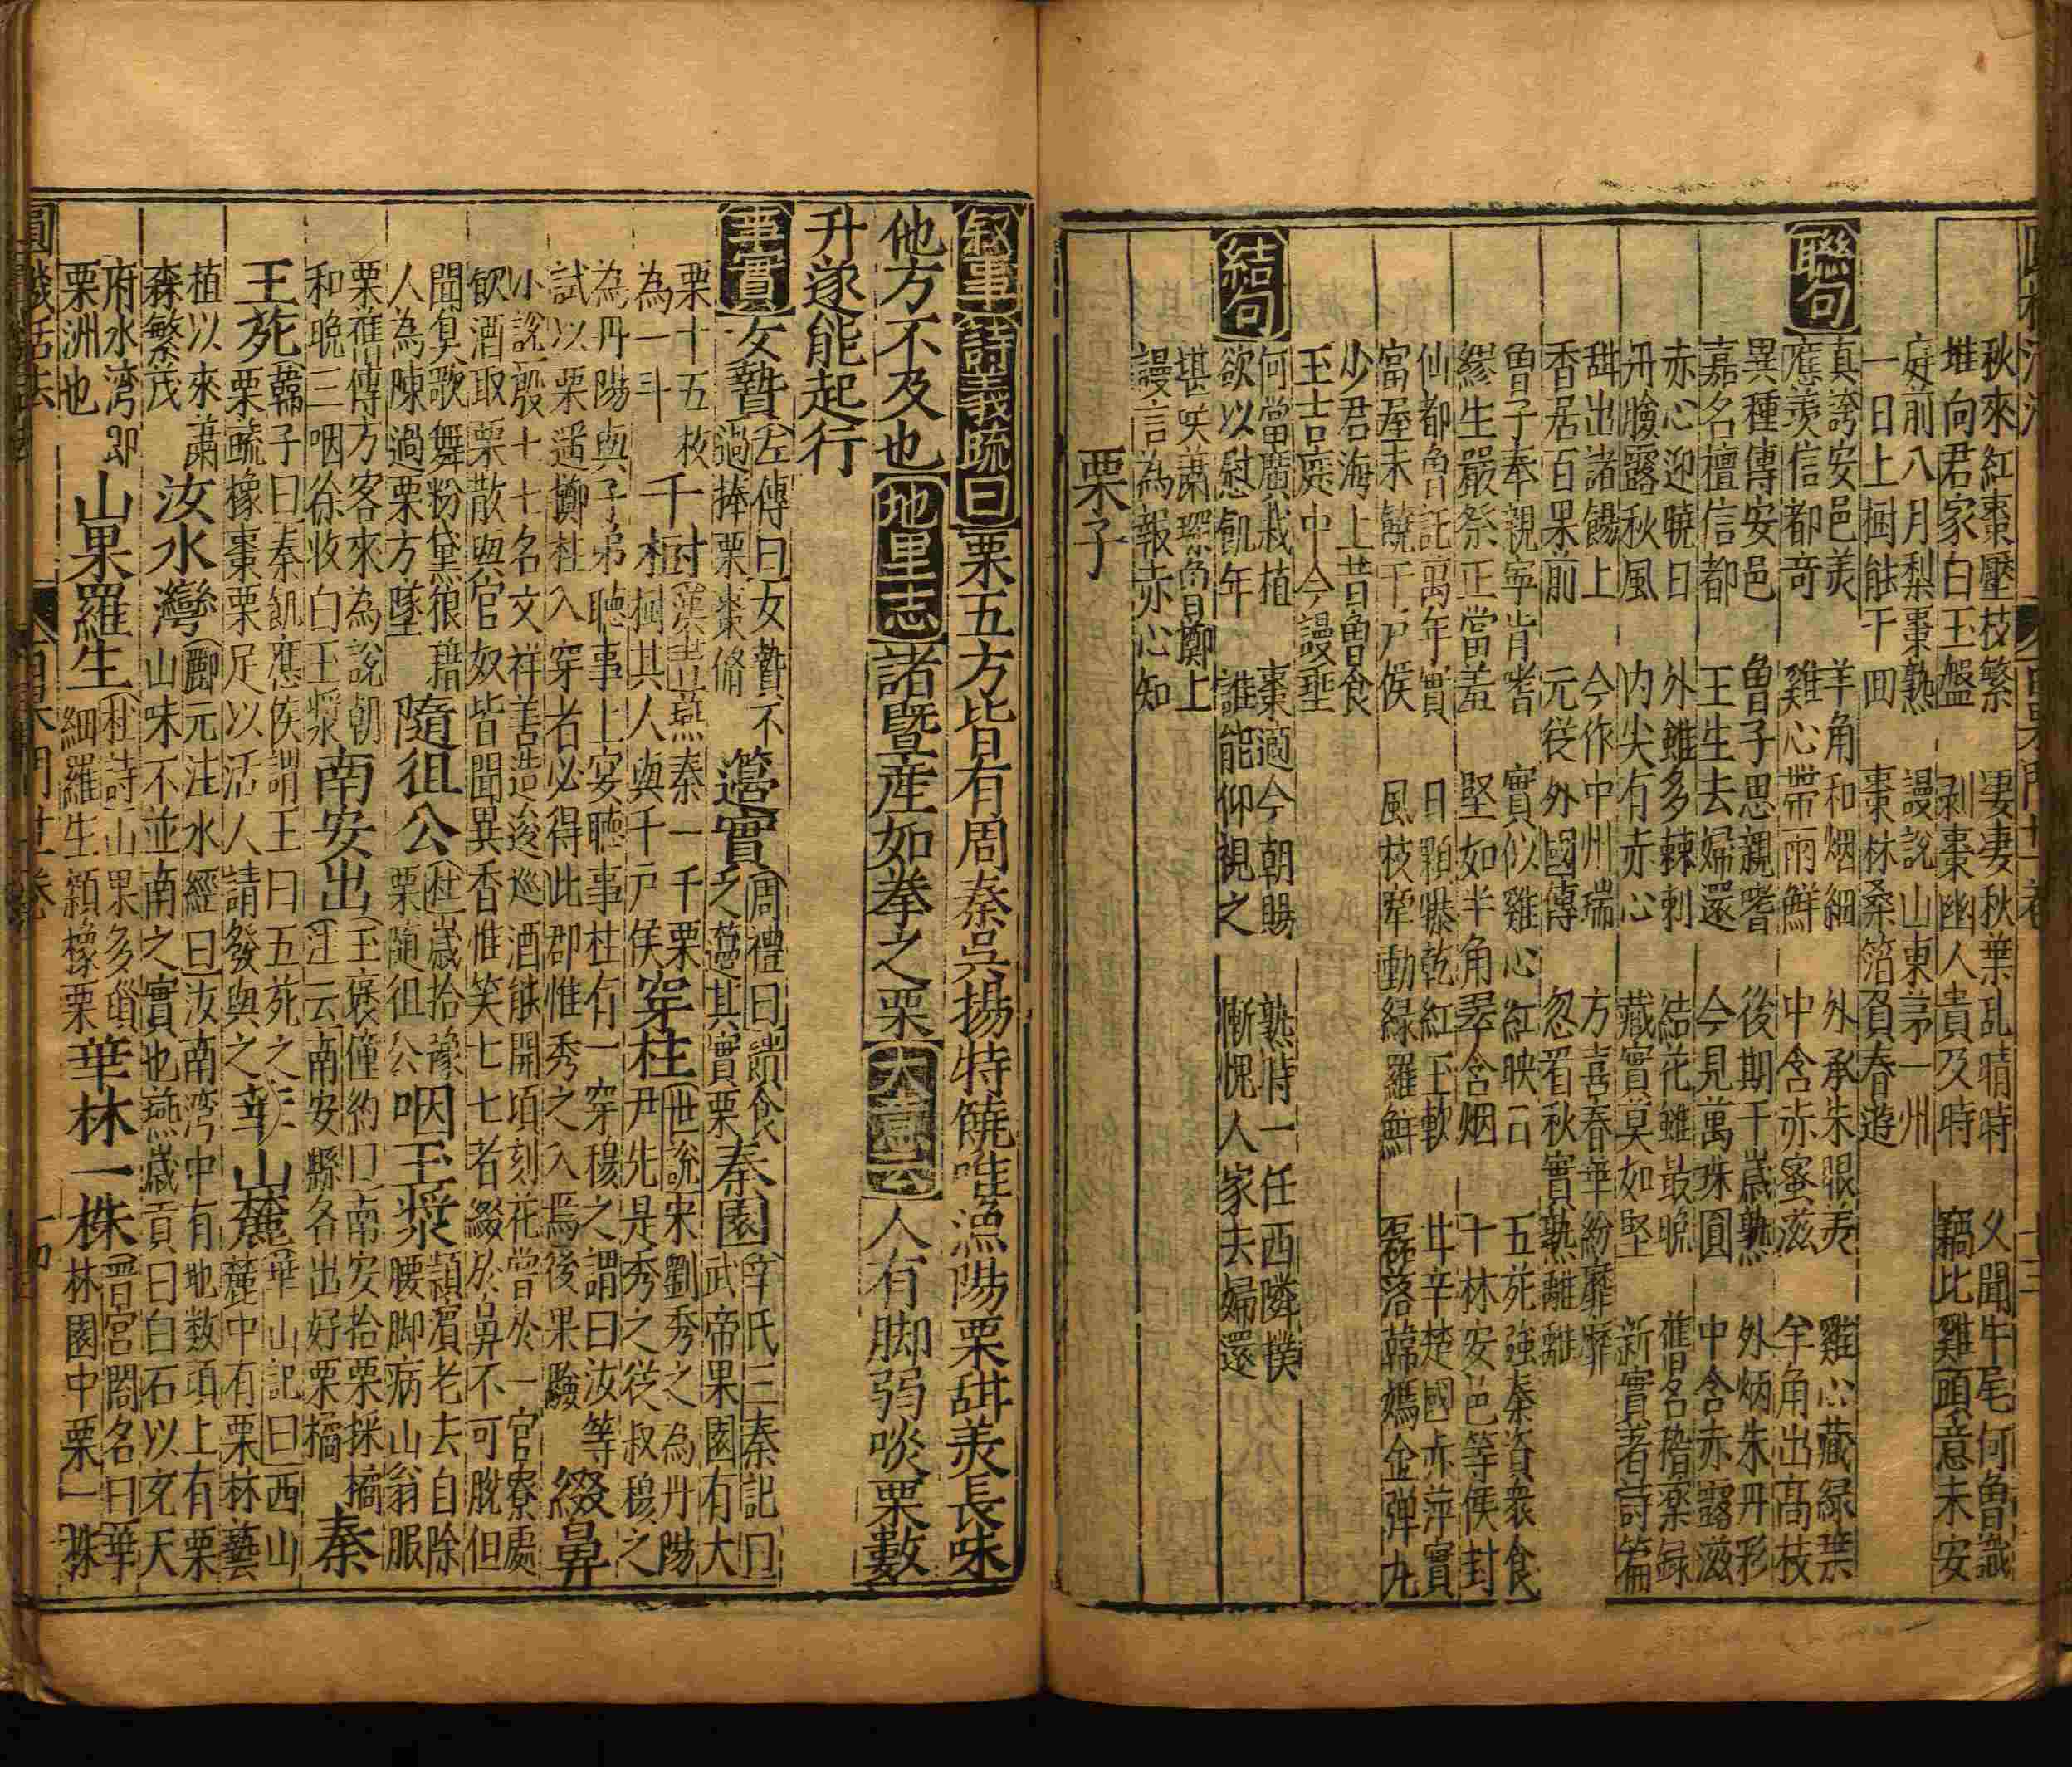 秋來紅棗壓枝繁　凄凄秋葉乱晴時　父聞牛尾何魯識
堆向君家白玉盤　剥棗幽人貴及時　竊比雞頭意未安
庭前八月梨棗熟　謾說山東茅一州
一日上樹能千囬　棗林桑箔負春遊
聯句
真誇安邑美　羊角和烟細　外承朱眼羙　雞心藏綠葉
應羡信都奇　雞心帶雨鮮　中含赤蜜滋　羊角出高枝
異種傳安邑　魯子思親嗜　後期千歳熟　外炳朱丹形
嘉名檀信都　王生去婦還　今見萬珠圓　中含赤露滋
赤心迎曉日　外雖多棘刺　結花雖最晚　舊名稽藥録
丹臉露秋風　内尖有赤心　藏實莫如堅　新實著詩篇
甜出諸餳上　今作中州瑞　方喜春華紛靡靡
香居百果前　元從外國傳　忽看秋實熟離離
魯子奉親寧肯嗜　實似雞心紅映日　五苑強秦資衆食
繆生嚴祭正當羞　堅如羊角翠含烟　千林安邑等侯封
仙都魯託萬年實　日顆曝乾紅玉軟　廿辛楚國赤萍實
富屋未饒千戸侯　風枝牽動緑羅鮮　磊落韓嫣金彈丸
少君海上昔魯食
王吉庭中今謾垂
結句
何當廣栽植　棗適今朝賜　熟時一任西隣撲
欲以慰飢年　誰能仰視之　慚愧人家去婦還
堪咲蕭琛魯擲上
謾言為報赤心知
栗子
叙事 詩義疏曰 栗五方皆有周秦吳揚特饒唯漁陽栗甜美長味
他方不及也 地里志 諸暨産如拳之栗 人有脚弱啖栗數
升遂能起行
事實 女贄 左傳曰女贄不過捧栗棗脩 籩實 周禮曰饋食之籩其實栗 秦園 辛氏三秦記曰武帝果園有大
栗十五枚為一斗 千樹 漢書燕秦一千栗樹其人與千戸侯 穿柱 世說宋劉秀之為丹陽尹先是秀之從叔穆之
為丹陽與子弟聽事上宴聽事柱有一穿穆之謂曰汝等試以栗遥擲柱入穿者必得此郡惟秀之入焉後果驗 綴鼻
小說殷十十名文祥善造逡巡酒能開頃刻花曾於一官寮處飲酒取栗散與官奴皆聞異香惟笑七七者綴於鼻不可脫但
聞臭歌舞粉黛狼藉人為陳過栗方墜 隨狙公 杜歳拾橡栗隨狙公 咽玉漿 潁濱老去自除腰脚病山翁服
栗舊傳方客來為說朝和晚三咽徐收白玉漿 南安出 王褒僮約曰南安拾栗採橘注云南安縣名出好栗橘 秦
王苑 韓子曰秦飢應侯謂王曰五苑之栗疏橡棗栗足以活人請發與之 華山麓 華山記曰西山麓中有栗林藝
植以來蕭森繁茂 汝水灣 酈元注水經曰汝南湾中有地数頃上有栗山味不並南之實也燕歳貢曰白石以充天
府水湾即栗洲也 山果羅生 杜詩山果多瑣細羅生穎橡栗 華林一株 晉宮閣名曰華林園中栗一株